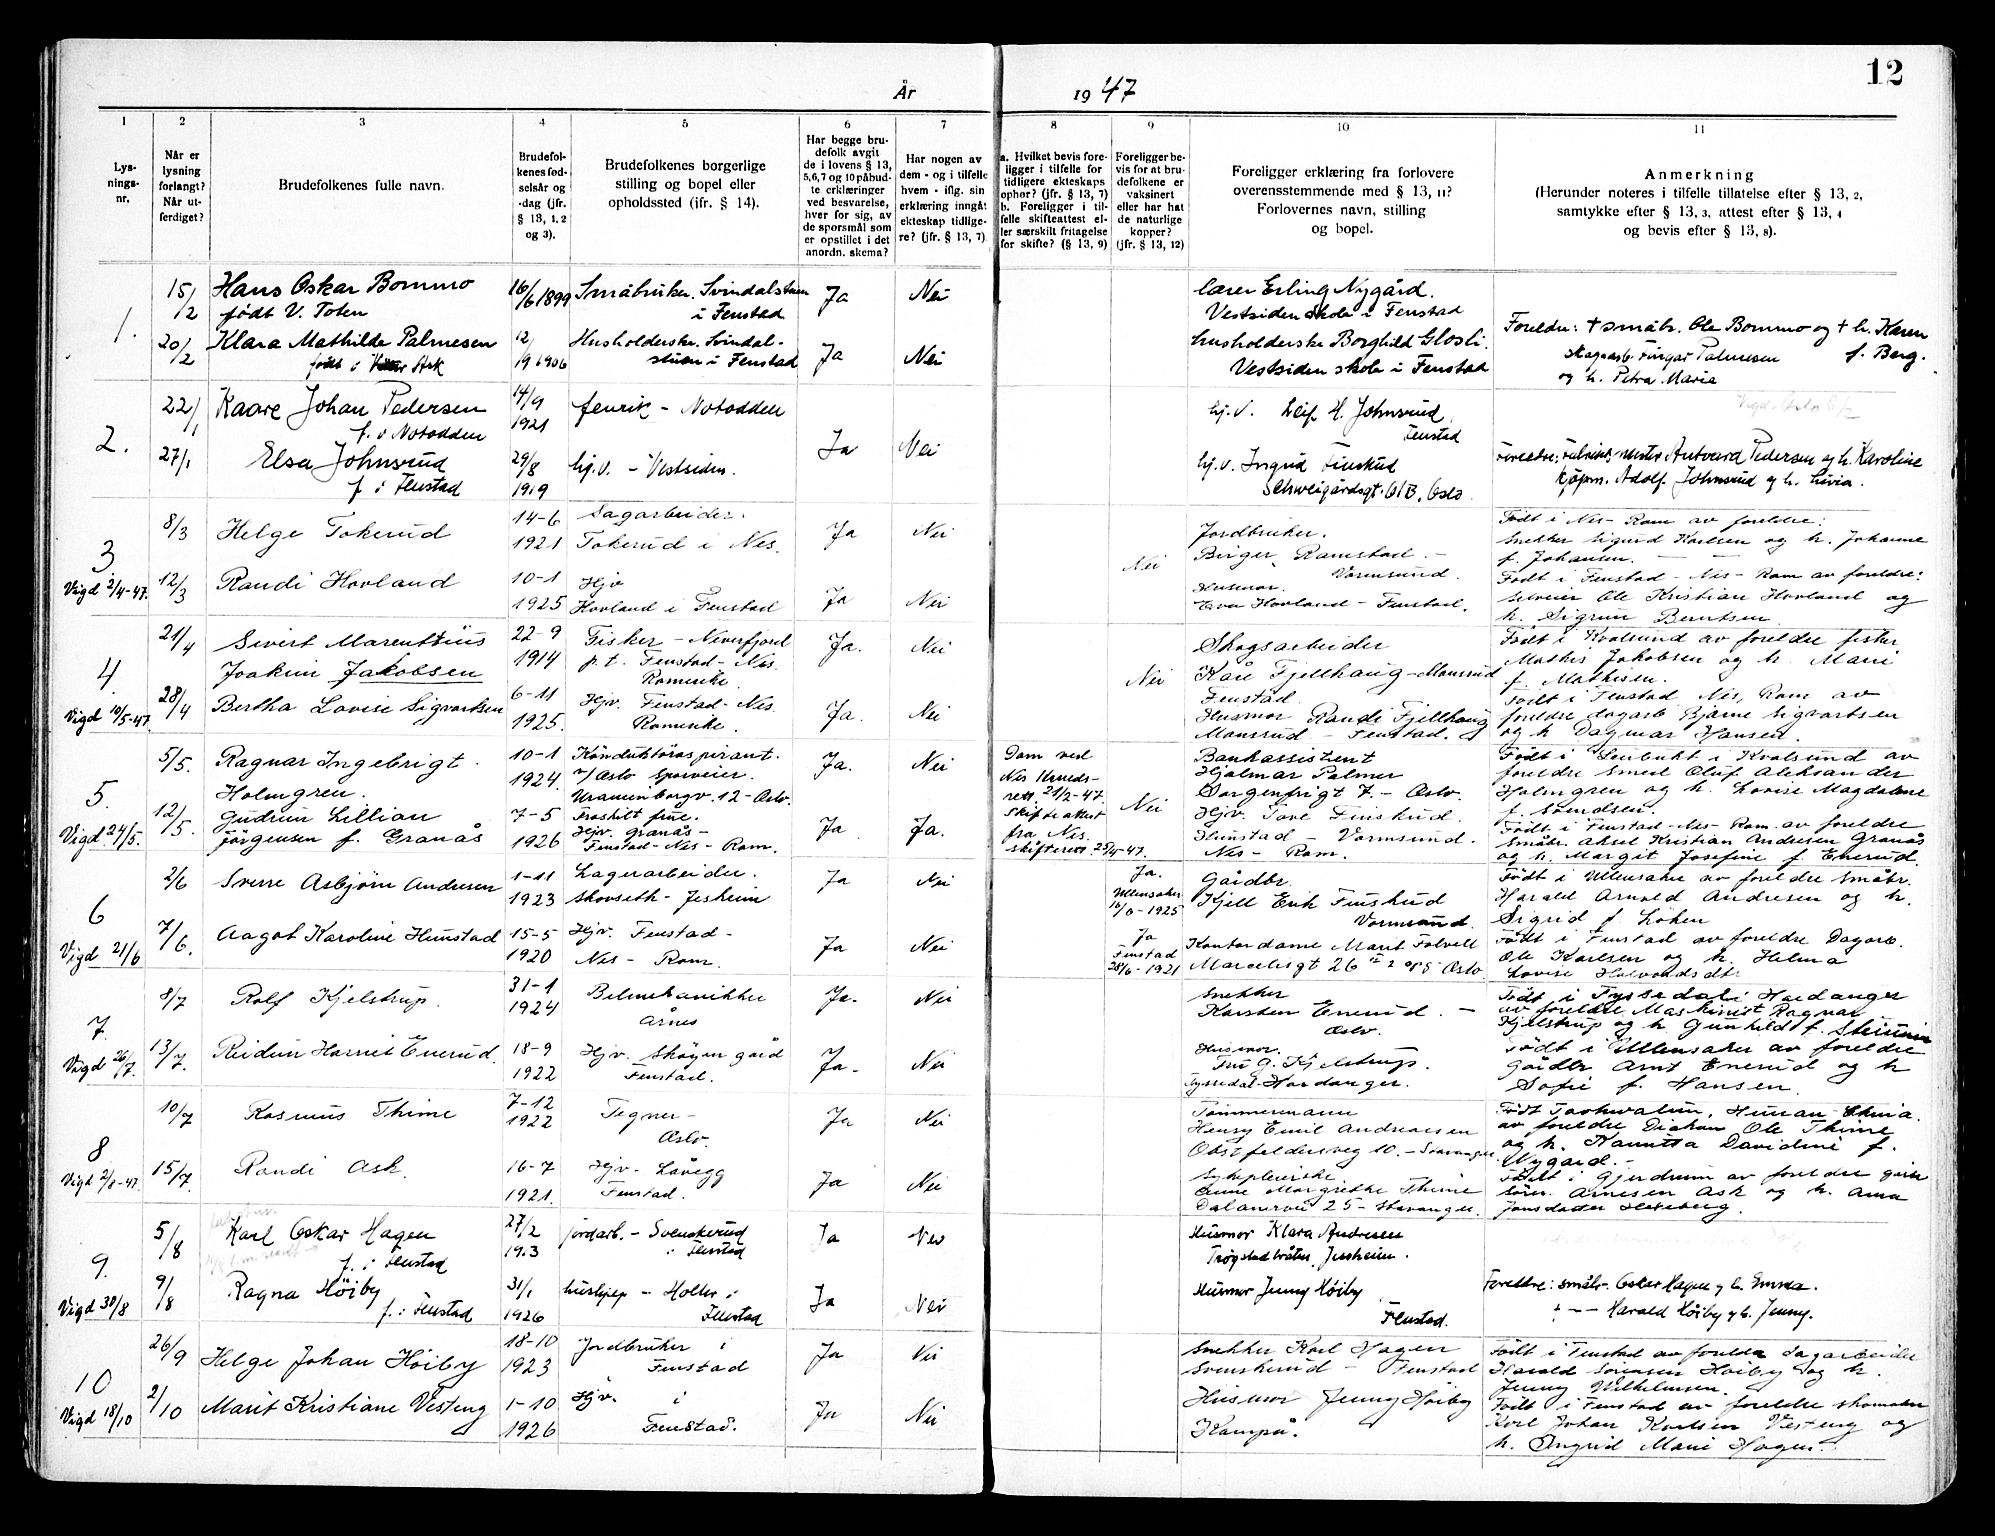 12
År 1947
1 2 3 4 5 6 7 8 9 10 11
Lys-
nings-
nr.
Når er
lysning
forlangt?
Når ut-
ferdiget?
Brudefolkenes fulle navn.
Brudefol-
kenes fød-
selsår og
-dag (jfr.
§ 13, 1, 2
og 3).
Brudefolkenes borgerlige
stilling og bopel eller
opholdssted (ifr. § 14).
Har begge bru-
defolk avgit
de i lovens § 13,
5,6,7 og 10 påbud-
te erklæringer
ved besvarelse,
hver for sig, av
de spørsmål som
er opstillet i det
anordn. skema?
Har nogen av
dem - og i tilfelle
hvem - iflg. sin
erklæring inngått
ekteskap tidlige-
re? (jfr. § 13, 7)
a. Hvilket bevis fore-
ligger i tilfelle for
tidligere ekteskaps
ophør? (jfr. § 13, 7)
b. Foreligger i til-
felle skifteattest el-
ler særskilt fritagelse
for skifte? (§ 13, 9)
Foreligger be-
vis for at bru-
defolkene er
vaksinert
eller har hat
de naturlige
kopper?
(jfr. § 13, 12)
Foreligger erklæring fra forlovere
overensstemmende med § 13, 11?
Forlovernes navn, stilling
og bopel.
Anmerkning
(Herunder noteres i tilfelle tillatelse efter § 13, 2,
samtykke efter § 13, 3, attest efter § 13, 4
og bevis efter § 13, 8).
1.
15/2 Hans Oskar Bommo 16/6 1899 Småbruker. Svindalstuen Ja Nei lærer Erling Nygård.
født V. Toten i Fenstad Vestsiden skole i Fenstad
20/2 Klara Mathilde Palmesen 12/9 1906 Husholderske. Svindal- Ja Nei husholderske Borghild Glosli.
født i Ask stuen i Fenstad Vestsiden skole i Fenstad
Foreldre: + småbr. Ole Bommo og + h. Karen
f. Berg.
Palmesen
og h. Petra Maria
2.
22/1 Kaare Johan Pedersen 14/9 1921 fenrik - Notodden hj.v. Leif H. Johnsrud
f. i Notodden Fenstad
27/1 Elsa Johnsrud 29/8 1919 hj.v. - Vestsiden. Ja Nei hj.v. Ingrid Finskud
f. i Fenstad Schweigårdsgt. 61B, Oslo.
Foreldre: Pedersen og h. Karoline
kjøpm. Adolf Johnsrud og h. Livia.
3.
Vigd 2/4-47.
8/3 Helge Tokerud 14-6 1921 Sagarbeider. Ja Nei Jordbruker.
Tokerud i Nes. Nei Birger Ramstad. -
Vormsund.
12/3 Randi Hovland 10-1 1925 Hjv Ja Nei Husmor.
Hovland i Fenstad Eva Hovland - Fenstad.
Født i Nes - Rom av foreldre:
snekker Sigurd Karlsen og h. Johanne
f. Johansen.
Født i Fenstad - Nes - Rom av foreldre:
Ole Kristian Hovland og
h. Sigrun Berntsen.
4
Vigd 10/5-47.
21/4 Sivert Marentius 22-9 1914 Fisker - Neverfjord Ja. Nei Skogsarbeider
Joakim Jakobsen p.t. Fenstad - Nes. Nei Kåre Fjellhaug - Monsrud
Romerike. Fenstad.
28/4 Bertha Lovise Sigvartsen 6-11 1925. Hjv. Fenstad - Nes Ja. Nei Husmor Randi Fjellhaug
Romerike. Monsrud - Fenstad.
Født i Kvalsund av foreldre fisker
Mathis Jakobsen og h. Marie
f. Mathisen.
Født i Fenstad Nes, Rom av
foreldre dagarb Bjarne Sigvartsen
og h Dagmar Hansen.
5.
Vigd. 24/5.
5/5. Ragnar Ingebrigt 10-1 1924 Konduktøraspirant. Ja. Nei Bankassistent
Holmgren. v/Oslo Sporveier. Hjalmar Palmer
Uranienborgv. 12 - Oslo. Sorgenfrigt 7. - Oslo.
12/5. Gudrun Lillian 7-5 1926 Fraskilt frue. Ja Ja. Hjv. Tove Finskud.
Jørgensen f. Granås Hjv. Granås - Hunstad - Vormsund.
Fenstad - Nes - Rom. Nes - Rom.
Dom ved
Nes Herreds-
rett. 21/2-47.
Skifteattest
fra Nes
skifterett. 25/4-47.
Nei
Født i Lerbukt i Kvalsund av
foreldre smed Oluf Aleksander
Holmgren og h. Lovise Magdalene
f. Amundsen.
Født i Fenstad - Nes - Rom. av foreldre
småbr. Aksel Kristian Andersen Granås
og h. Margit Josefine f. Enerud.
6
Vigd 21/6
2/6 Sverre Asbjørn Andresen 1-11 1923 Lagerarbeider. Ja Nei Gårdbr.
Skovseth - Jesheim Kjell Erik Finskud
Vormsund.
7/6. Aagot Karoline Hunstad 15-5 1920 Hjv. Fenstad - Ja Nei Kontordame Marit Tolvell
Nes - Rom. Marcelisgt 26 Oslo.
Ja.
Ullensaker
1925
Ja
Fenstad
28/6-1921
Født i Ullensaker av foreldre småbr.
Harald Arnold Andresen og h.
Sigrid f. Løken
Født i Fenstad av foreldre Dagarb.
Ole Karlsen og h. Helma
Lovise Halvordsdtr
7.
Vigd 26/7.
8/7 Rolf Kjelstrup. 31-1 1924 Bilmekanikker Ja. Nei Snekker
Årnes Karsten Enerud. -
Oslo.
13/7. Reidun Harriet Enerud. 18-9 1922 Hjv. Skøyen gård Ja. Nei Husmor.
Fenstad. Fru G. Kjelstrup.
Tyssedal - Hardanger.
Født i Tyssedal i Hardanger
av foreldre Maskinist Ragnar
Kjelstrup og h. Gunhild f.
Født i Ullensaker av foreldre
Gårdbr Arnt Enerud og h
Sofie f. Hansen.
8
Vigd 2/8-47.
10/7 Rasmus Thime 7-12 1922 Tegner - Ja Nei Tømmermann
Oslo. Henry Emil Andreassen
Obstfeldersveg 10. - Stavanger.
15/7. Randi Ask 16-7 1921. Hjv. Låvegg Ja Nei Sykepleierske
Fenstad. Anne Margrethe Thime
Dalanevei 25 - Stavanger.
Født Taohwalun, Hunan - China.
av foreldre Diakon Ole Thime
og h. Davidine f.
Nygård. -
Født i Gjerdrum av foreldre
Arnesen Ask og h. Anna
Jonsdatter Heksberg.
9.
Vigd 30/8
5/8 Karl Oskar Hagen 27/2 1913 jordarb. - Svenskerud Ja Nei Husmor Klara Andresen
f. i Fenstad i Fenstad Jessheim.
9/8 Ragna Høiby 31/1 1926 hushjelp - Holter i Ja Nei Husmor Jenny Høiby
f. i Fenstad Fenstad Fenstad.
Foreldre: småbr. Oskar Hagen og h. Emma.
+ - - Harald Høiby og h. Jenny.
10
Vigd 18/10
26/9 Helge Johan Høiby 18-10 1923 Jordbruker i Ja Nei Snekker Karl Hagen
Fenstad Svenskerud - Fenstad
2/10 Marit Kristiane Vesteng 1-10 1926 Hjv. i Ja Nei Husmor Jenny Høiby
Fenstad. Kampå.
Født i Fenstad av foreldre Sagarbeider
Harald Sørensen Høiby og h.
Jenny Wilhelmsen.
Født i Fenstad av foreldre skomaker
Karl Johan Karlsen Vesteng og
h. Ingrid Marie Hagen.